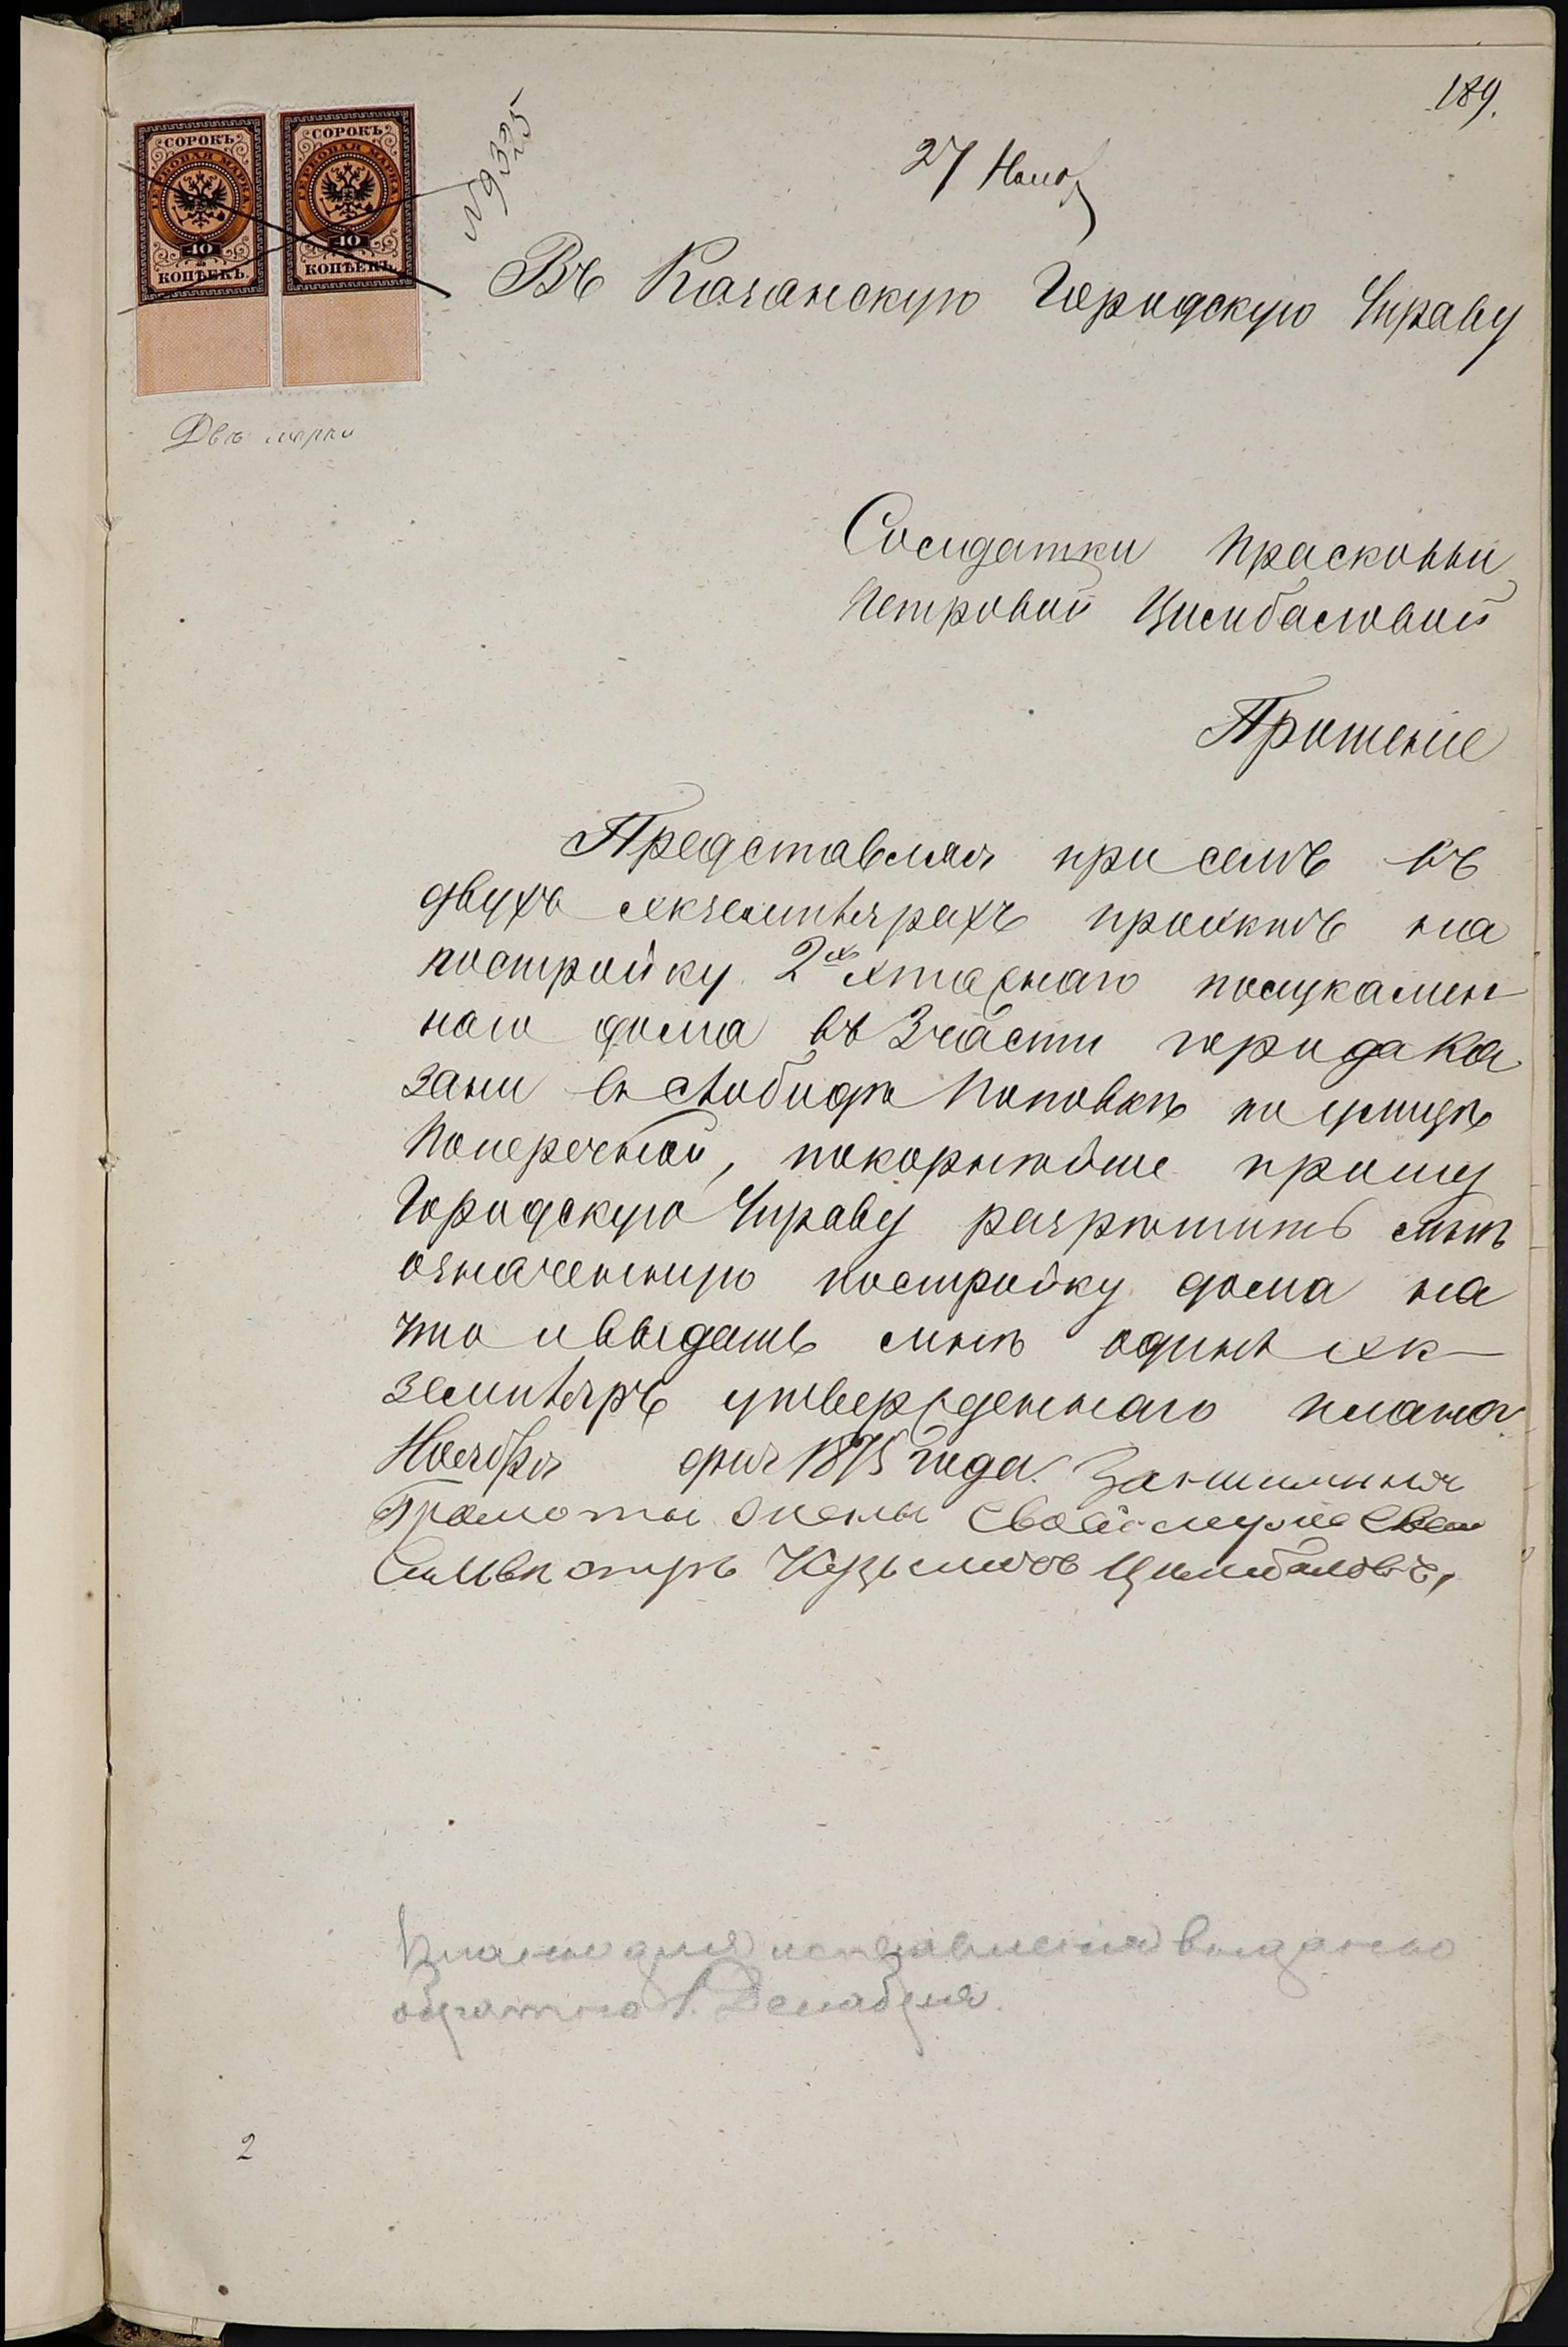 189.
СОРОКЪ
ГЕРБОВАЯ МАРКА
40
КОПѢЕКЪ.
СОРОКЪ
ГЕРБОВАЯ МАРКА
40
КОПѢЕКЪ.
N 9325
27 Нояб
Двѣ марки
Въ Казанскую Городскую Управу
Солдатки Прасковьи
Петровой Цимбаловой
Прошеніе
Представляя при семъ въ
двухъ экземплярахъ проэктъ на
постройку 2 х этажнаго полукамен
наго дома въ 3 части города Ка
зани въ слободѣ Поповкѣ по улицѣ
Поперечной, покорнѣйше прошу
Городскую Управу разрѣшить мнѣ
означенную постройку дома на
что и выдать мнѣ одинъ эк-
земпляръ утвержденнаго плана.
Ноября дня 1875 года.
Грамоты жены своей мужъ
Кузьмовъ Цимбаловъ,
Планъ для исправленія выданъ
обратно 1. Декабря.
2